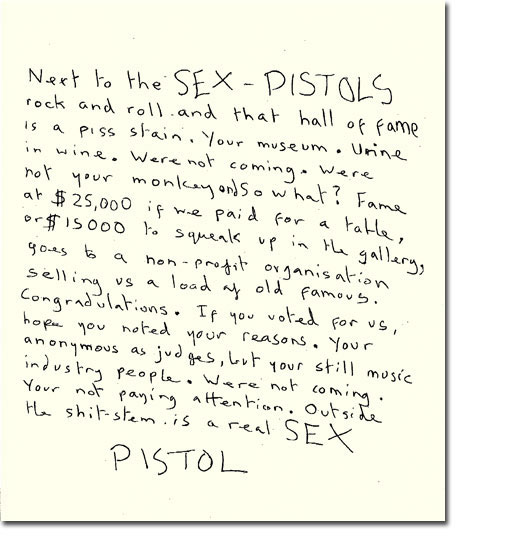 Next to the SEX-PISTOLS
rock and roll.and that hall of fame
is a piss stain. Your museum. Urine
in wine. Were not coming. Were
not your monkey and So what? Fame
at $25,000 if we paid for a table,
or $15000 to squeak up in the gallery,
goes to a non-profit organisation
selling us a load of old famous.
Congradulations. If you voted for us,
hope you noted your reasons. Your
anonymous as judges, but your still music
industry people. Were not coming.
Your not paying attention. Outside
the shit-stem.is a real SEX
PISTOL